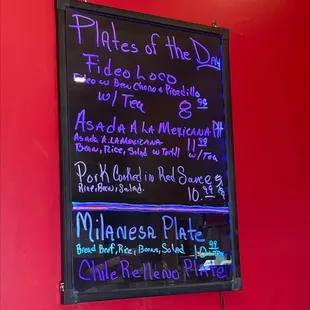 Plates of the Day
Fideo Loco
Fideo w/ Bean, Chorizo & Picadillo
w/ Tea 8 99
Asada A La Mexicana Plt
Asada A La Mexicana 11 99
Bean, Rice, Salad w/ Tortill w/ Tea
Pork Cooked in Red Sauce
Rice, Bean, Salad. 10. 99
Milanesa Plate
Bread Beef, Rice, Beans, Salad 10 99
Chile Relleno Plate